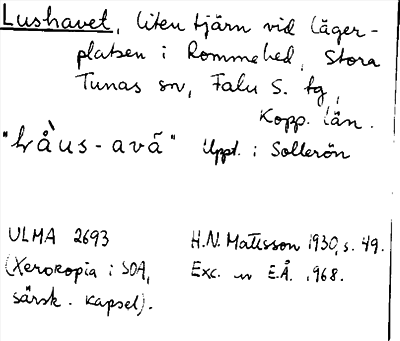 Lushavet, liten tjärn vid läger-
platsen i Rommehed, Stora
Tunas sn, Falu S. tg,
Kopp. län.
"lråus-avã" Uppt. i Sollerön
ULMA 2693 H.N. Mattsson 1930, s. 49.
(Xerokopia i SOA, Exc. av E.Å. 1968.
särsk. kapsel).